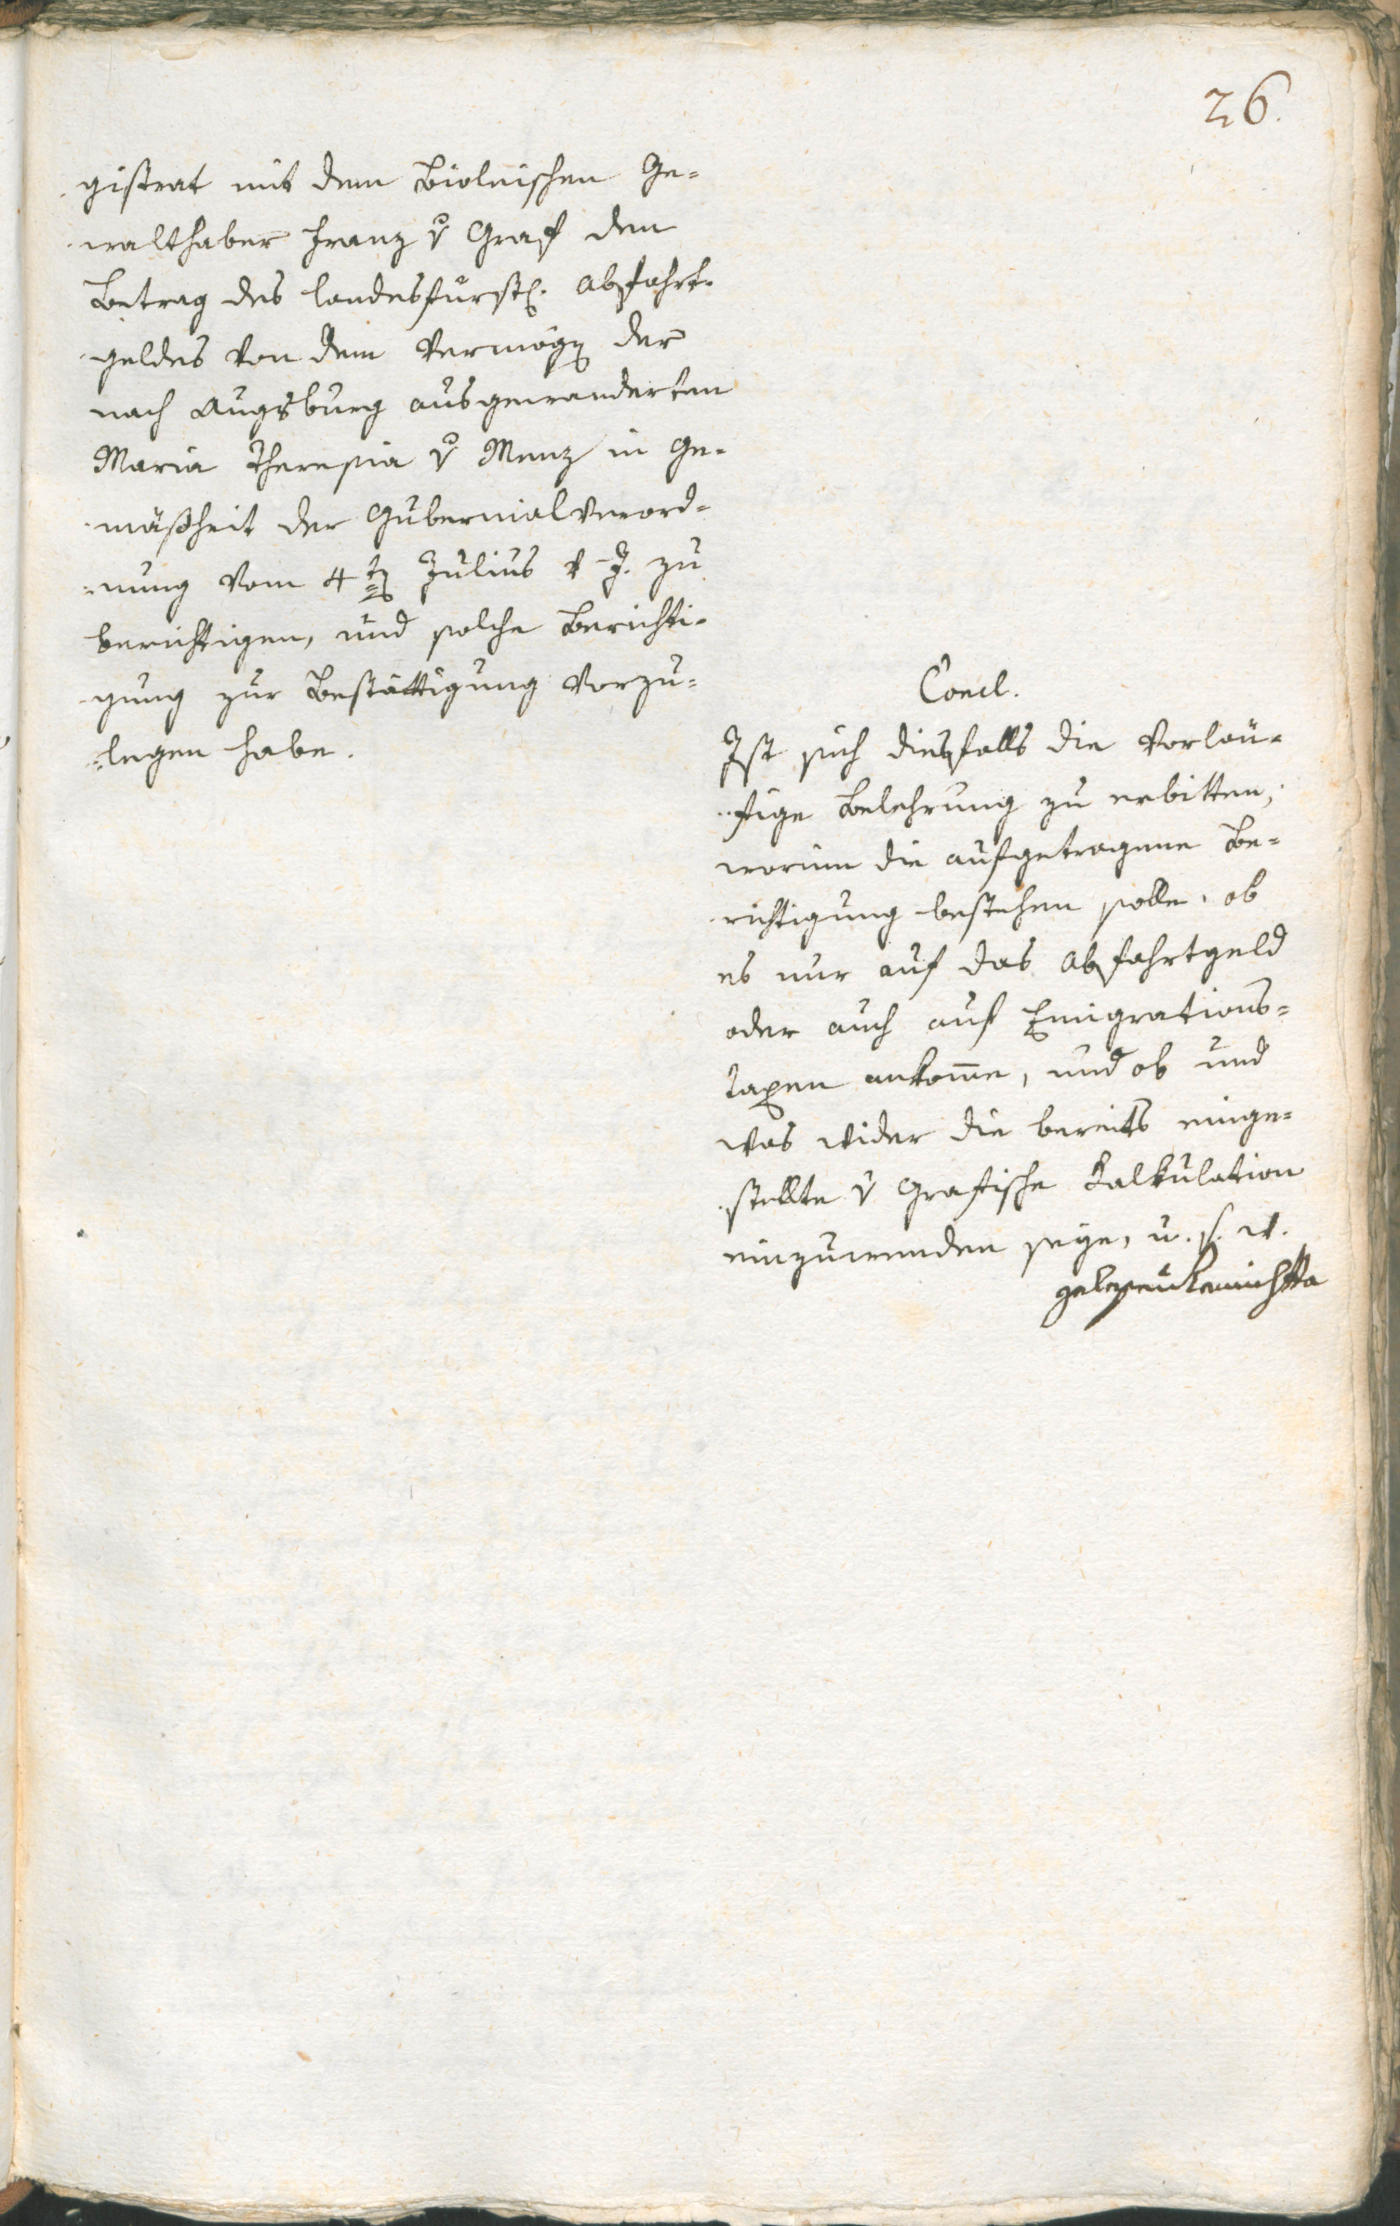 26.
gistrat mit dem Biolaischen Ge-
walthaber Franz v Graf den
Betrag des landesfürstl. Abfahrt-
geldes von dem Vermögen der
nach Augsburg ausgewanderten
Maria Theresia v Menz in Ge-
mäßheit der Gubernialverord-
=nung vom 4ten Julius v. J. zu
berichtigen, und solche Berichti-
gung zur Bestättigung vorzu-
=legen habe.
Concl.
Ist sich diesfalls die vorläu-
fige Belehrung zu erbitten,
worinn die aufgetragene Be-
richtigung bestehen solle, ob
es nur auf das Abfahrtgeld
oder auch auf Emigrations-
taxen ankom̄e, und ob und
was wider die bereits einge-
stellte v Grafische Kalkulation
einzuwenden seye, u. s. w.